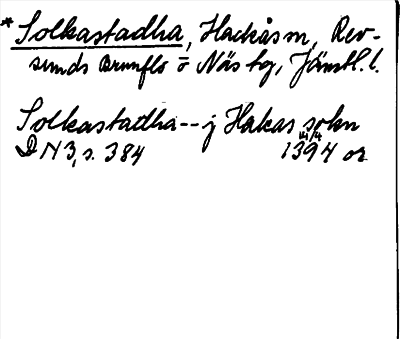 * Solkastadha, Hackås sn, Rev-
sunds Brunflo o Näs tg, Jämtl. l.
Solkastadha -- j Hakas sokn
DN 3, s. 384 14/4 1394 or